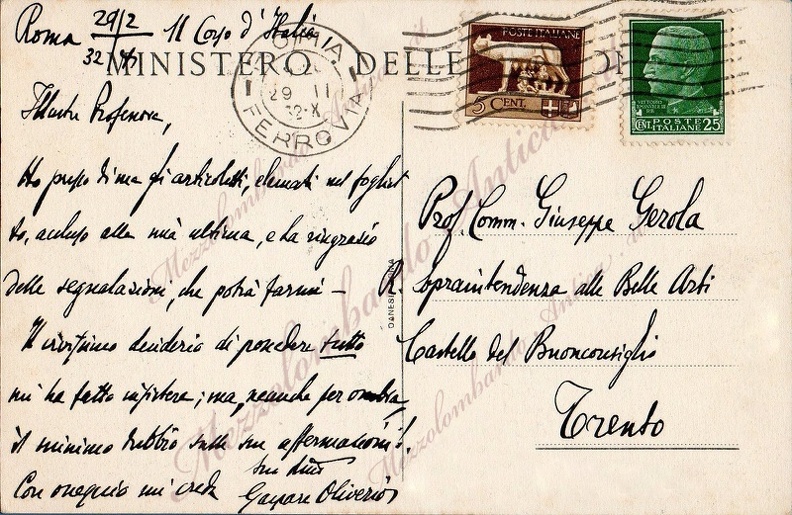 Roma 29/2 11 Corso d'Italia
32
MINISTERO DELLE
ROMA
29 II
32·X
FERROVIA
POSTE ITALIANE
5 CENT.
VITTORIO EMANUELE III
CENT. POSTE ITALIANE 25
Illustre Professore,
Ho preso di ma gli articoletti, elencati nel fogliet
to, accluso alla mia ultima, e La ringrazio
delle segnalazioni, che potrà farmi –
Il vivissimo desiderio di possedere tutto
mi ha fatto insistere; ma, neanche per ombra,
il minimo dubbio sulle sue affermazioni!
Con ossequio mi creda
Gaspare Oliverio
DANESI ROMA
Prof. Comm. Giuseppe Gerola
R. Sopraintendenza alle Belle Arti
Castello del Buonconsiglio
Trento
Mezzolombardo Antica
Mezzolombardo Antica